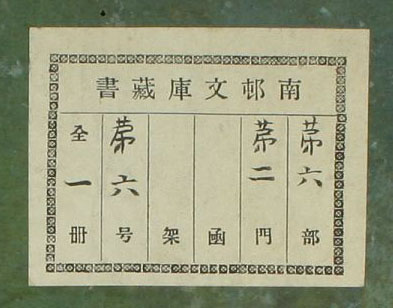 南邨文庫藏書
第六部
第二門
函
架
第六号
全一冊